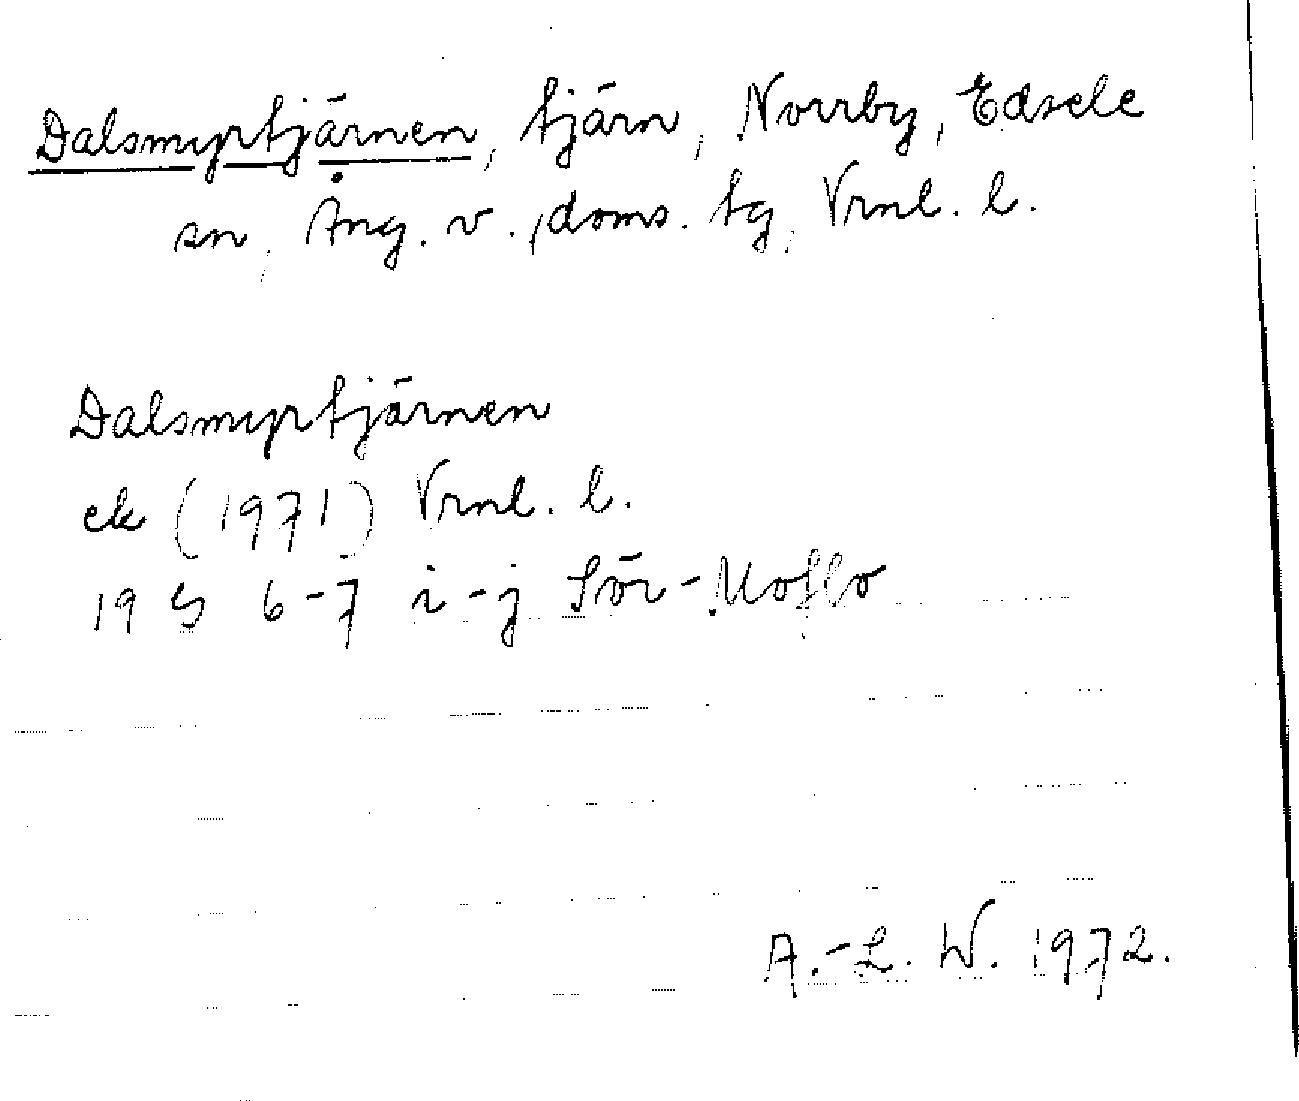 Dalsmyrtjärnen, tjärn, Norrby, Edsele
sn, Ång. v., doms. tg, Vrnl. l.
Dalsmyrtjärnen
ek (1971) Vrnl. l.
19 G 6-7 i-j Sör-Moflo
A.-L. W. 1972.